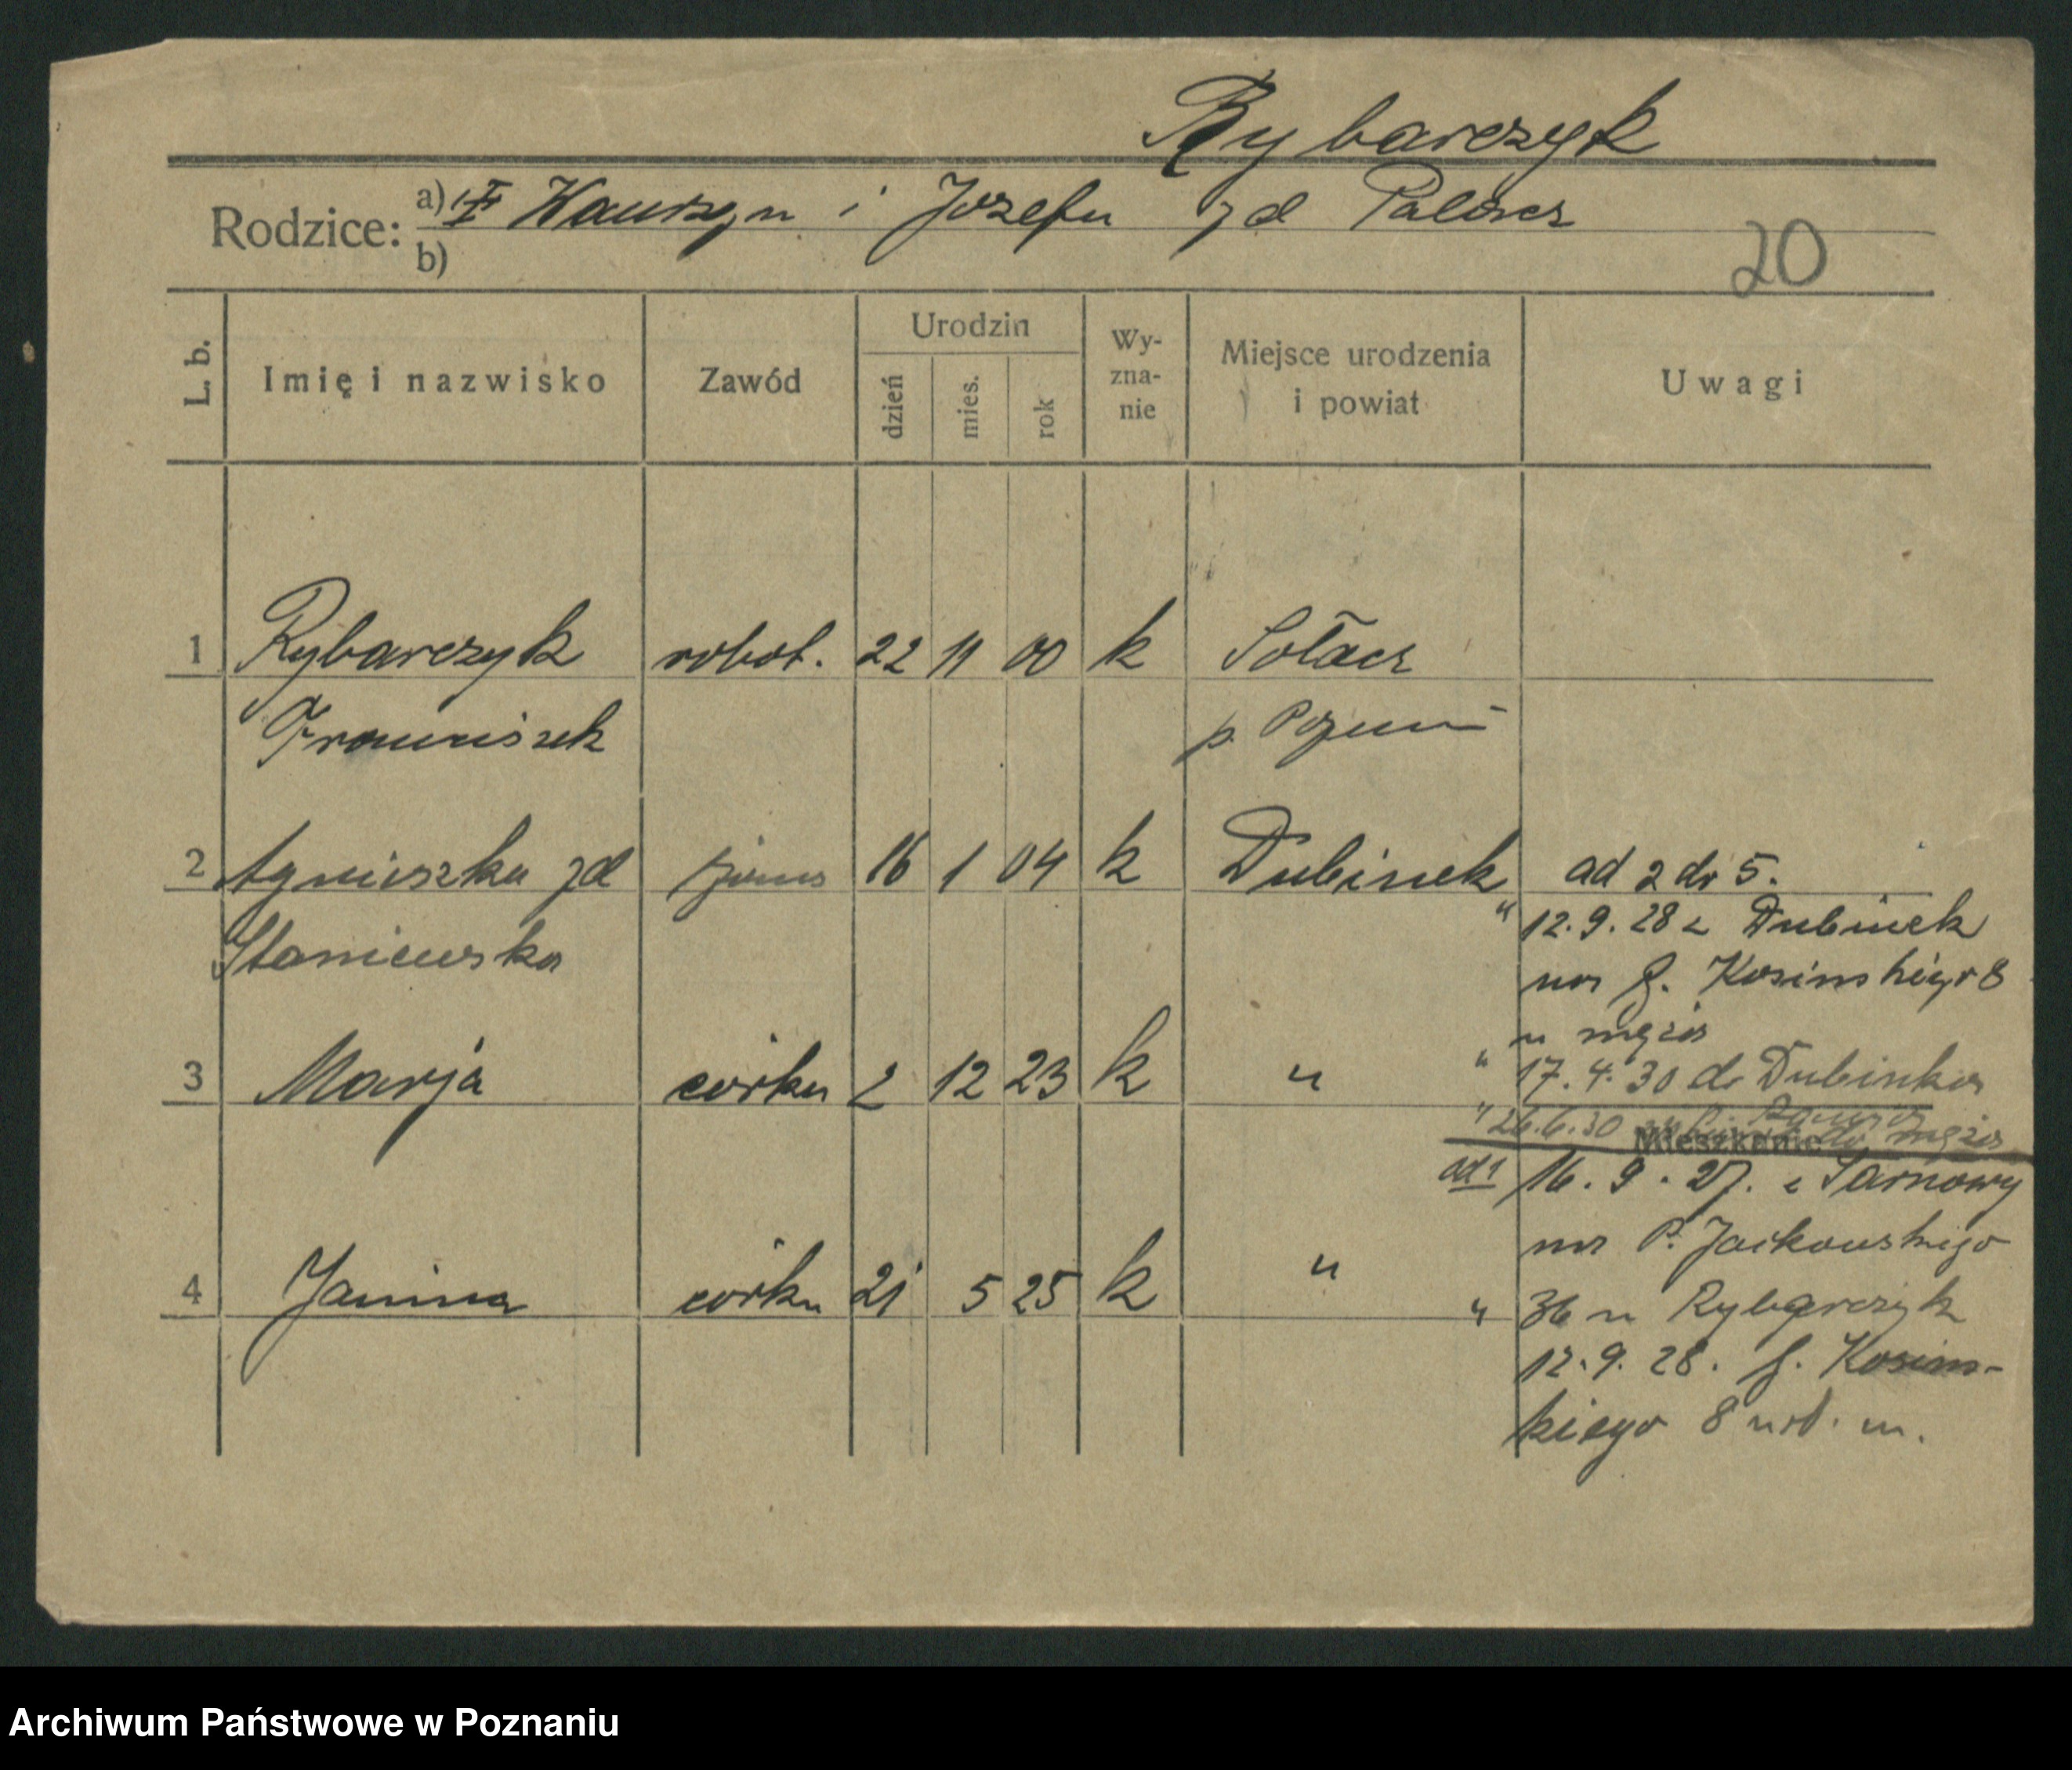 Rybarczyk
Rodzice: a) Wawrzyn i Jozefa zd Palacz
b)
20
L. b. Imię i nazwisko Zawód Urodzin dzień mies. rok Wy-zna-nie Miejsce urodzenia i powiat Uwagi
1 Rybarczyk robot. 22 11 00 k Sołacz
Franciszek p. Poznań
2 Agnieszka zd żona 16 1 04 k Dubinek ad 2 do 5.
Staniewska " 12.9.28 z Dubinek
na G. Kosinskiego 8
u męża
3 Marja corka 2 12 23 k " " 17.4.30 do Dubinka
" 26.6.30 męża
Mieszkanie
ad 1 16.9.27. z Sarnowy
na P. Jackowskiego
4 Janina corka 21 5 25 k " " 36 u Rybarczyk
12.9.28. G. Kosins-
kiego 8 wł. m.
Archiwum Państwowe w Poznaniu